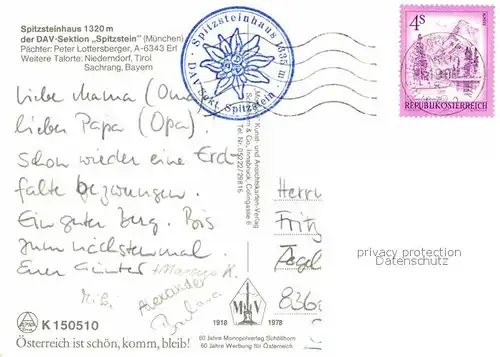 Spitzsteinhaus 1320 m
der DAV-Sektion „Spitzstein" (München)
Pächter: Peter Lottersberger, A-6343 Erl
Weitere Talorte: Niederndorf, Tirol
Sachrang, Bayern
· Spitzsteinhaus 1335 m ·
DAV Sekt. Spitzstein
4 S
REPUBLIK ÖSTERREICH
Liebe Mama (Oma)
lieber Papa (Opa).
Schon wieder eine Erd-
falte bezwungen.
Ein guter Berg. Bis
zum nächstenmal.
Euer Günter + Marcus K.
Alexander
Barbara
Kunst- und Ansichtskarten-Verlag
& Co., Innsbruck, Colingasse 6
Tel. Nr. 05222/29816
Herrn
Fritz
836
privacy protection
Datenschutz
M V
1918 1978
60 Jahre Monopolverlag Schöllhorn
60 Jahre Werbung für Österreich
K 150510
Österreich ist schön, komm, bleib!